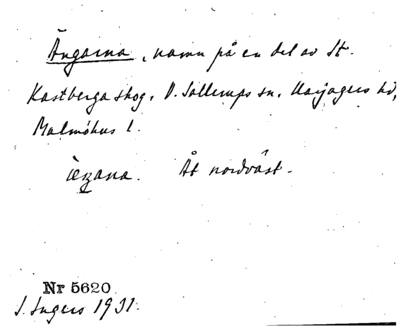 Ängarna, namn på en del av St.
Kastberga skog. V. Sallerups sn, Harjagers hd,
Malmöhus l.
Åt nordväst.
Nr 5620
I. Ingers 1931.